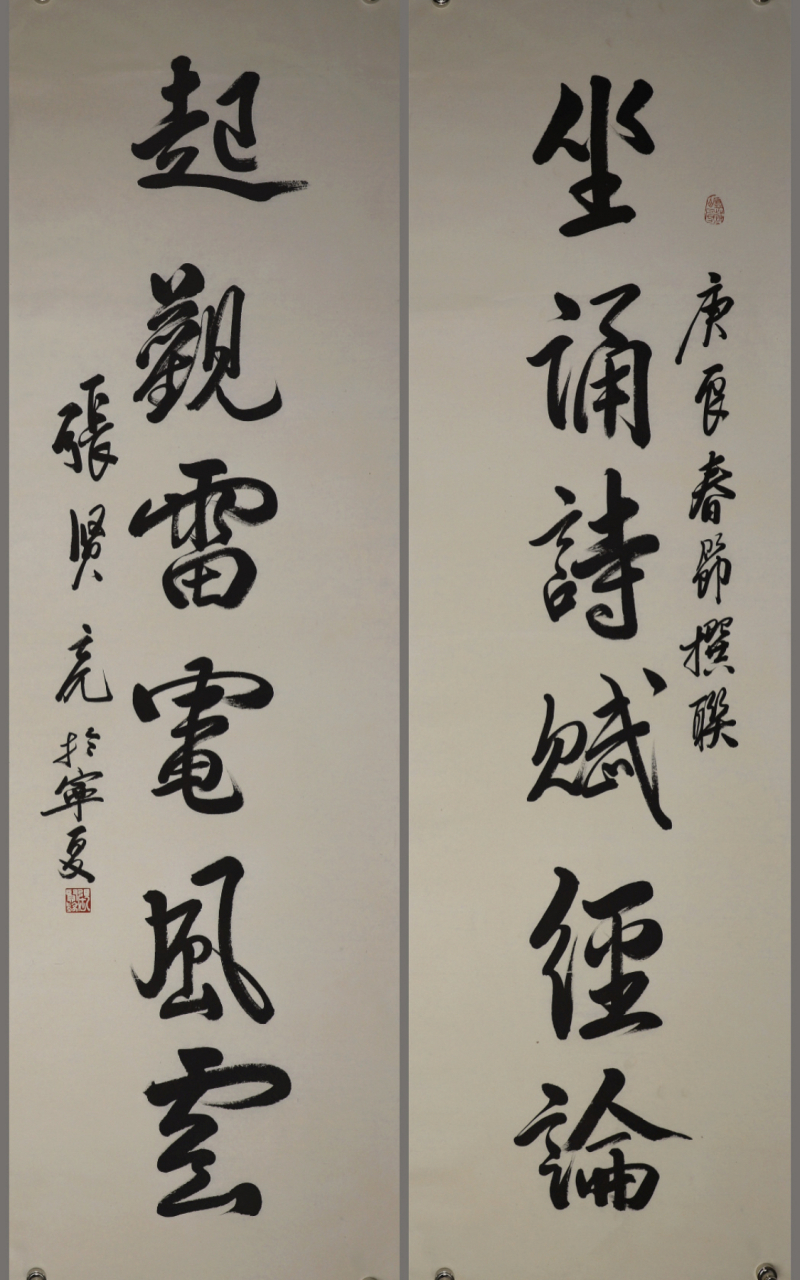 庚辰春節撰聯
坐誦詩賦經論
起觀雷電風雲
張賢亮於寧夏